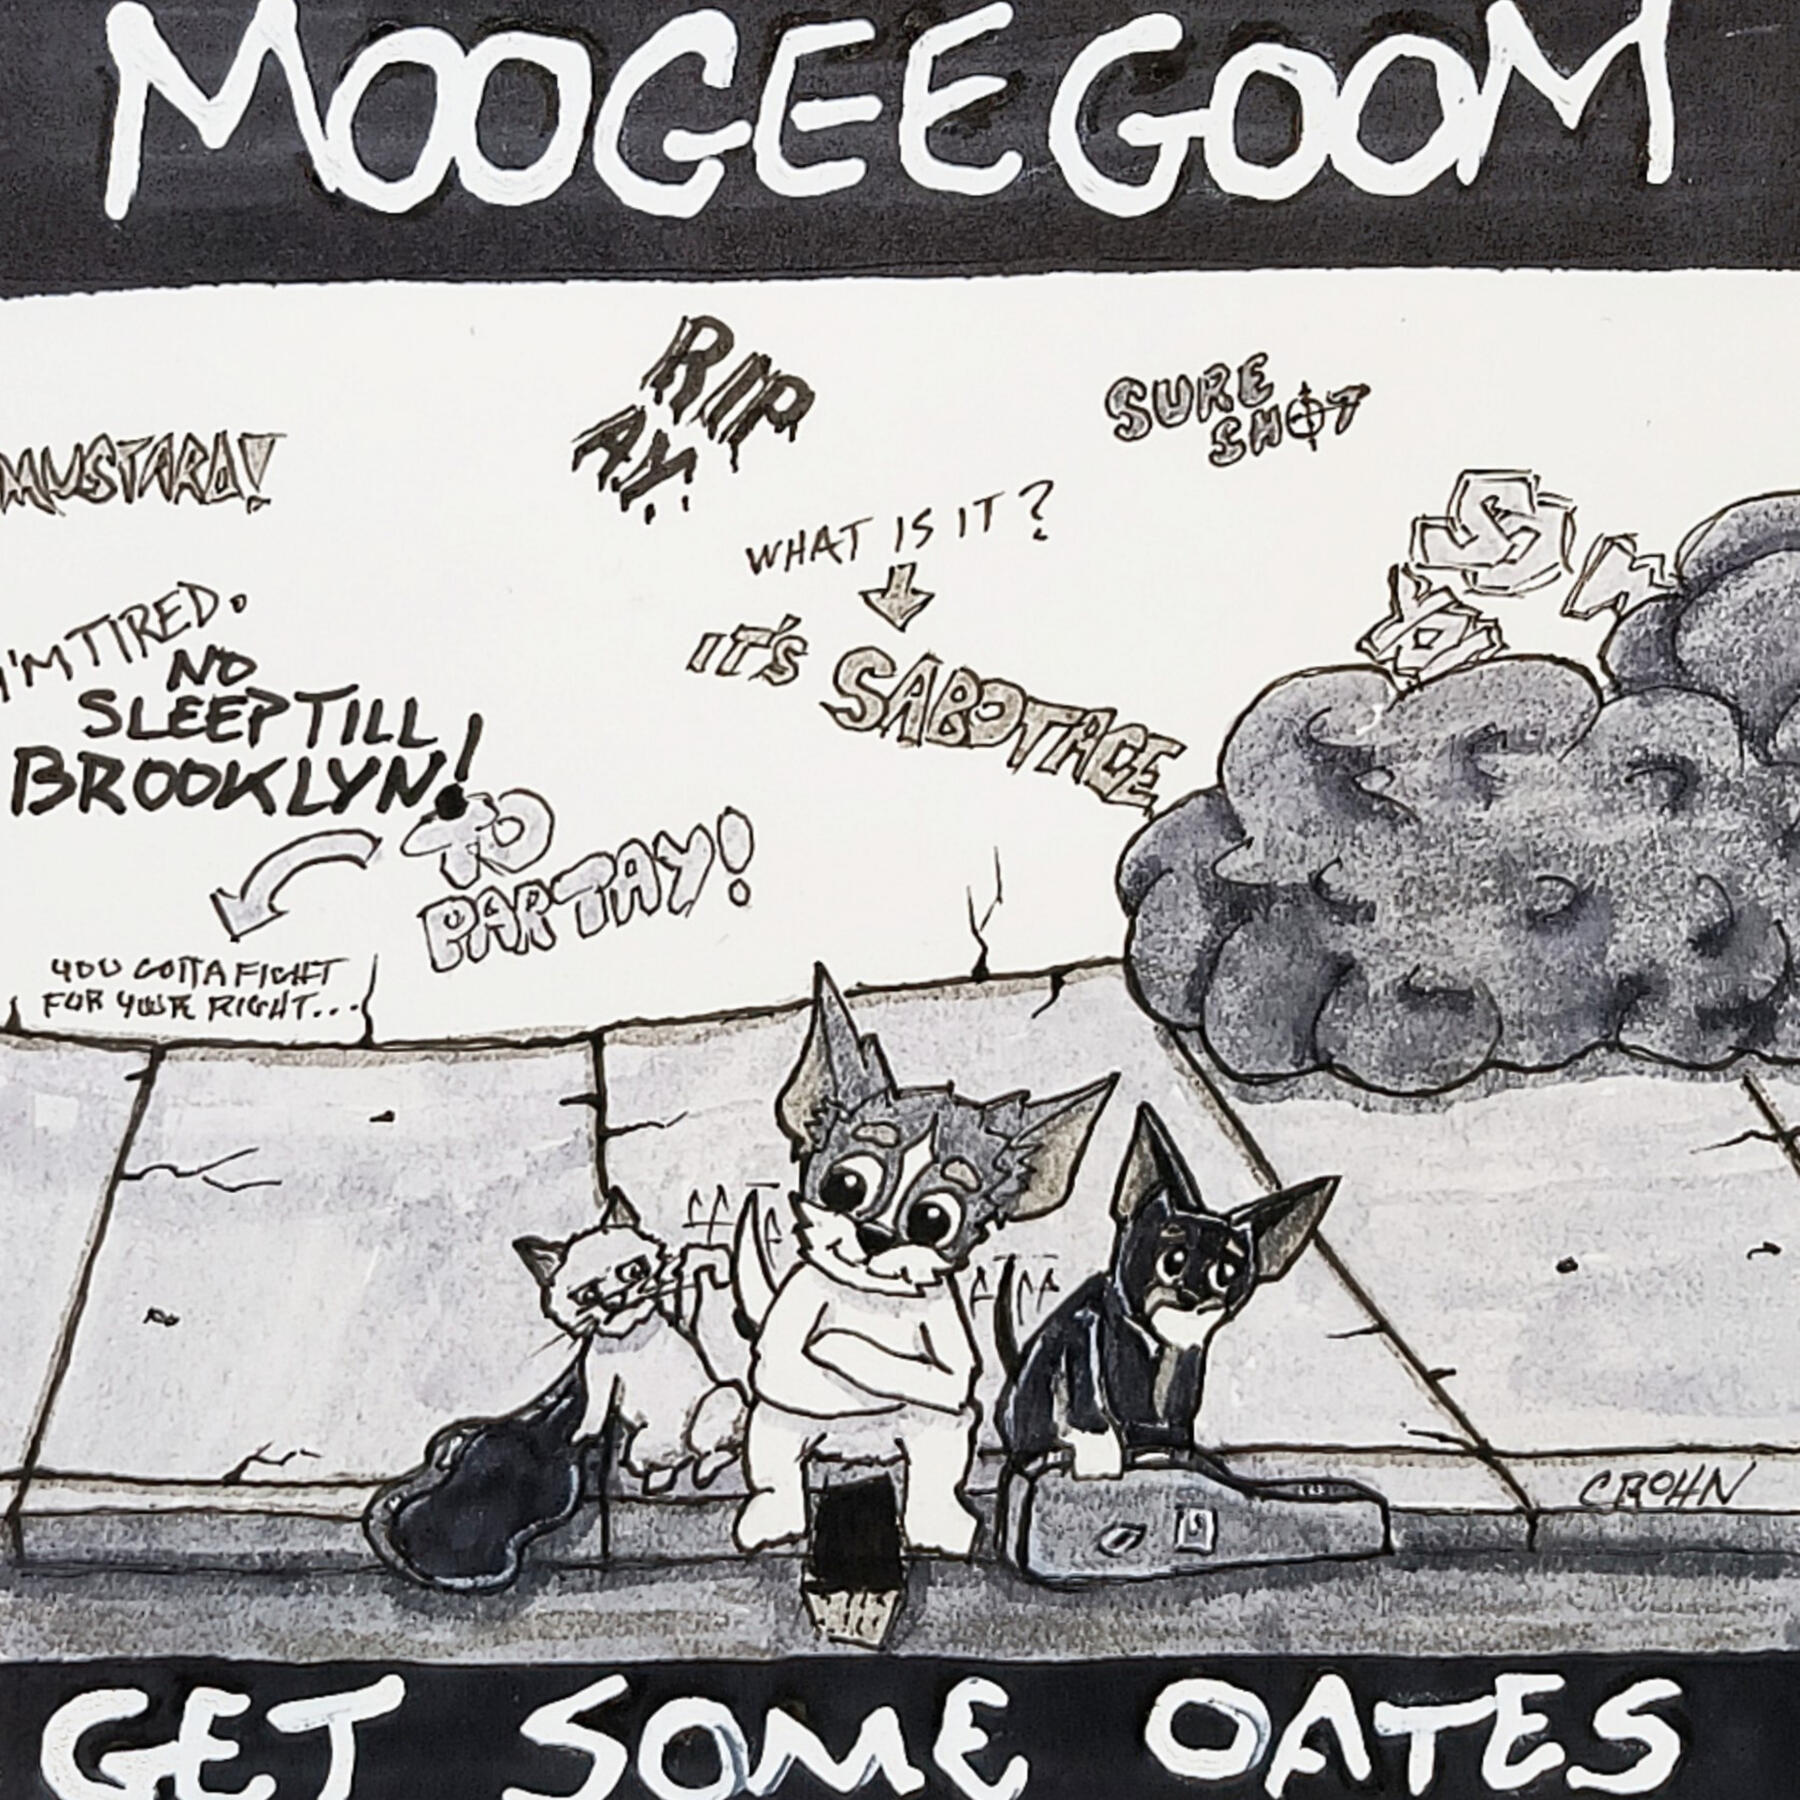 MOOGEEGOOM
RIP
A.Y.
SURE
SHOT
MUSTARD!
WHAT IS IT?
IT'S SABOTAGE
I'M TIRED.
NO
SLEEP TILL
BROOKLYN!
TO
PARTAY!
YOU GOTTA FIGHT
FOR YOUR RIGHT...
CROHN
GET SOME OATES